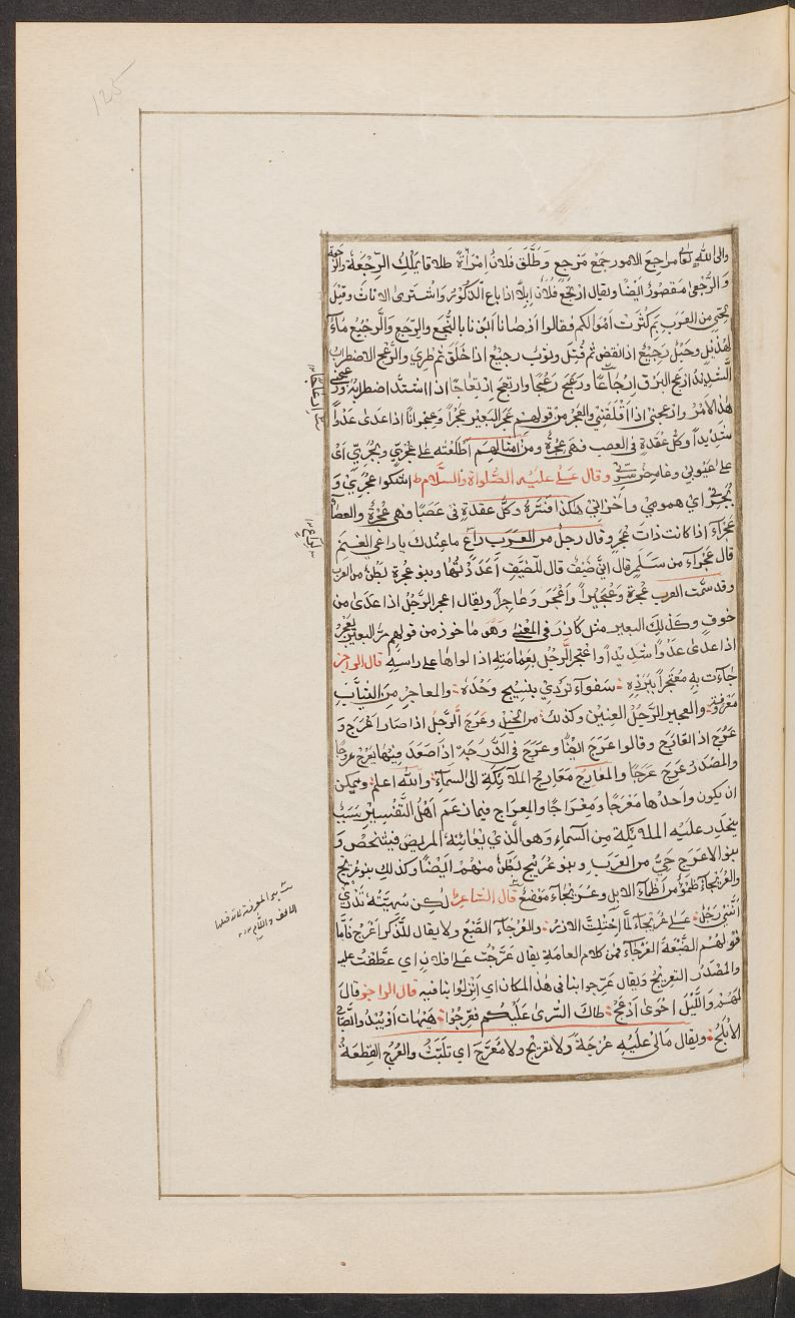 125
والى الله تعالى مراجع الامور جمع مرجع وطلق فلان امرأة طلاقا يملك الرّجعة والرّجعة
والرُّجعى مقصورٌ ايضًا ويقال ارتجع فلان ابلًا اذا باع الذكور واشترى الاناث وقيل
لحيّ من العرب بم كثرت اموالكم فقالوا اوصانا ابونا بالنُّجع والرِّجع والرجيع ماءٌ
لهذيل وحبل رجيع اذا نقض ثم فُتِل وثوب رجيع اذا خلق ثم طرى والزعج الاضطراب
الشديد ازعج البرق ارعاجًا ورعج رعجًا وارتعج ارتعاجًا اذا اشتد اضطرابه
هذا الامر وازعجنى اذا اقلقنى والعجر من قولهم عجر البعير عجرًا وعجرانًا اذا عدى عدوًا
شديداً وكل عقدة فى العصب فهى عجرة ومن امثالهم اطلعته على عُجَرى وبُجَرى اى
على عيوبى وغامض سرّى وقال عليّ عليه الصلواة والسّلام اشكوا عُجَرى و
بُجَرى اي همومي وما خزانى هكذا فسّرهُ وكل عقدة فى عصا فهى عُجرة والعصا
عجراء اذا كانت ذات عُجَر وقال رجل من العرب راعٍ ما عندك يا راعي الغنم
قال عجراء من سلم قال انى ضيفٌ قال للضيف اعددتُها وبنو عجرة بطن من العرب
وقد سمّت العرب عُجرة وعُجيراً وأعجر وعاجراً ويقال اعجر الرّجل اذا عدى من
خوف وكذلك البعير مثل كادر فى المعنى وهو ماخوذ من قولهم مرّ البعير يعجر
اذا عدى عدوًا شديداً واعتجر الرّجل بعمامته اذا لواها على راسه قال الراجز
جاءت به معتجراً ببرده سفواء تردى بنسيج وحده والمعاجر من الثياب
معروفة والعجير الرّجل العِنّين وكذلك من الخيل وعرج الرّجل اذا صار اعرج و
عرج اذا تعارج وقالوا عرج ايضًا وعرج فى الدّرجة اذا صعد فيها يعرج عروجًا
والمصدر عرج عرجًا والمعارج معارج الملائكة الى السماء والله اعلم ويمكن
ان يكون واحدها معرجًا ومعراجًا والمعراج فيما زعم اهل التفسير سبب
ينحدر عليه الملائكة من السماء وهو الذي يعاينه المريض فيشخص و
بنو الاعرج حيّ من العرب وبنو عريج بطن منهم ايضًا وكذلك بنو عريج
والعريجاء ظمؤ من اظماء الابل وعريجاء موضع قال الشاعر لكن سهيّته تدرى
أننى رجلٌ على عريجاء لما احتلت الازر والعرجاء الضبع ولا يقال للذكر اعرج فامّا
قولهم الضبعة العرجاء فمن كلام العامة يقال عرّجت على فلان اى عطفت عليه
والمصدر التعريج ويقال عرّجوا بنا فى هذا المكان اى انزلوا بنا فيه قال الراجز قال
لهم والليل احوى ادعج طال السُّرى عليكم فعرّجوا هيهات او يبدو الصباح
الابلج ويقال مالى عليه عرجة ولا تعريج ولا معرّج اى تلبّث والعرج القطعة